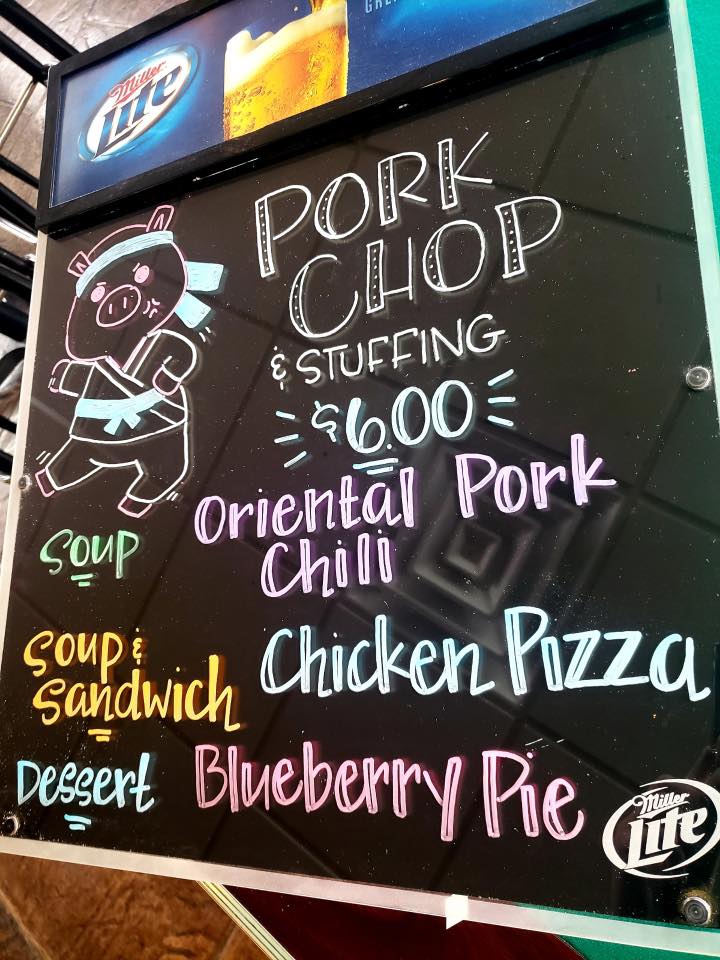 Miller
Lite
PORK
CHOP
& STUFFING
$6.00
Soup
Oriental Pork
Chili
Soup &
Sandwich
Chicken Pizza
Dessert
Blueberry Pie
Miller
Lite